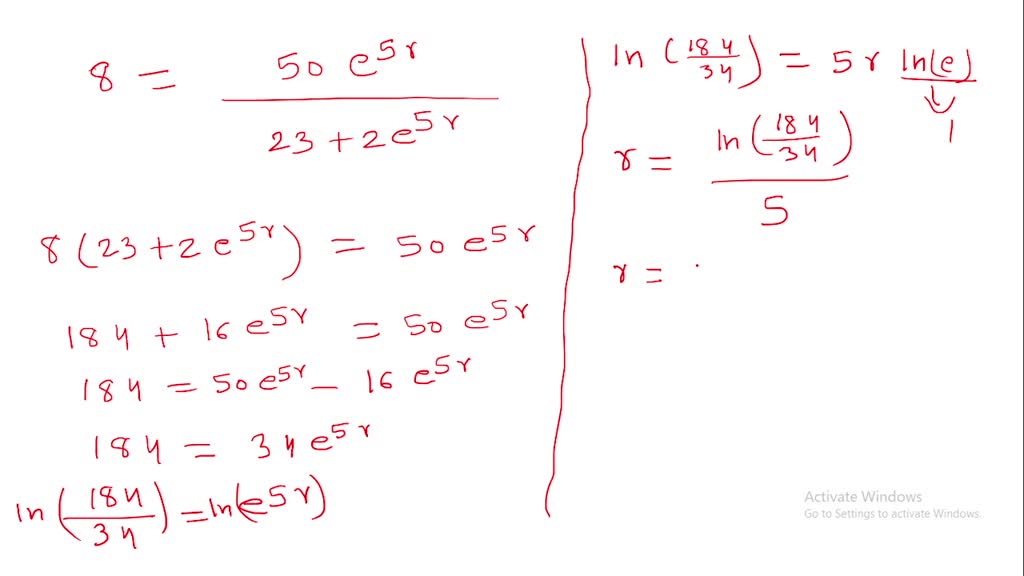 8 = 50 e^{5r} / 23 + 2e^{5r}
8 (23 + 2 e^{5r}) = 50 e^{5r}
184 + 16 e^{5r} = 50 e^{5r}
184 = 50 e^{5r} - 16 e^{5r}
184 = 34 e^{5r}
ln (184/34) = ln(e^{5r})
ln (184/34) = 5r ln(e)
↓
1
r = ln(184/34) / 5
r = .
Activate Windows
Go to Settings to activate Windows.